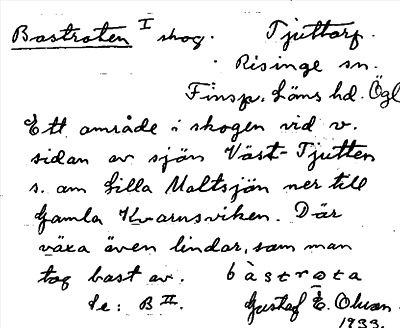 Bastroten I skog. Tjuttorp.
Risinge sn.
Finsp. läns hd. Ögl
Ett område i skogen vid v.
sidan av sjön Väst-Tjutten
s. om Lilla Maltsjön ner till
Gamla Kvarnsviken. Där
växa även lindar, som man
tog bast av. bàstrota
Se: B II. Gustaf E. Olsson
1933.